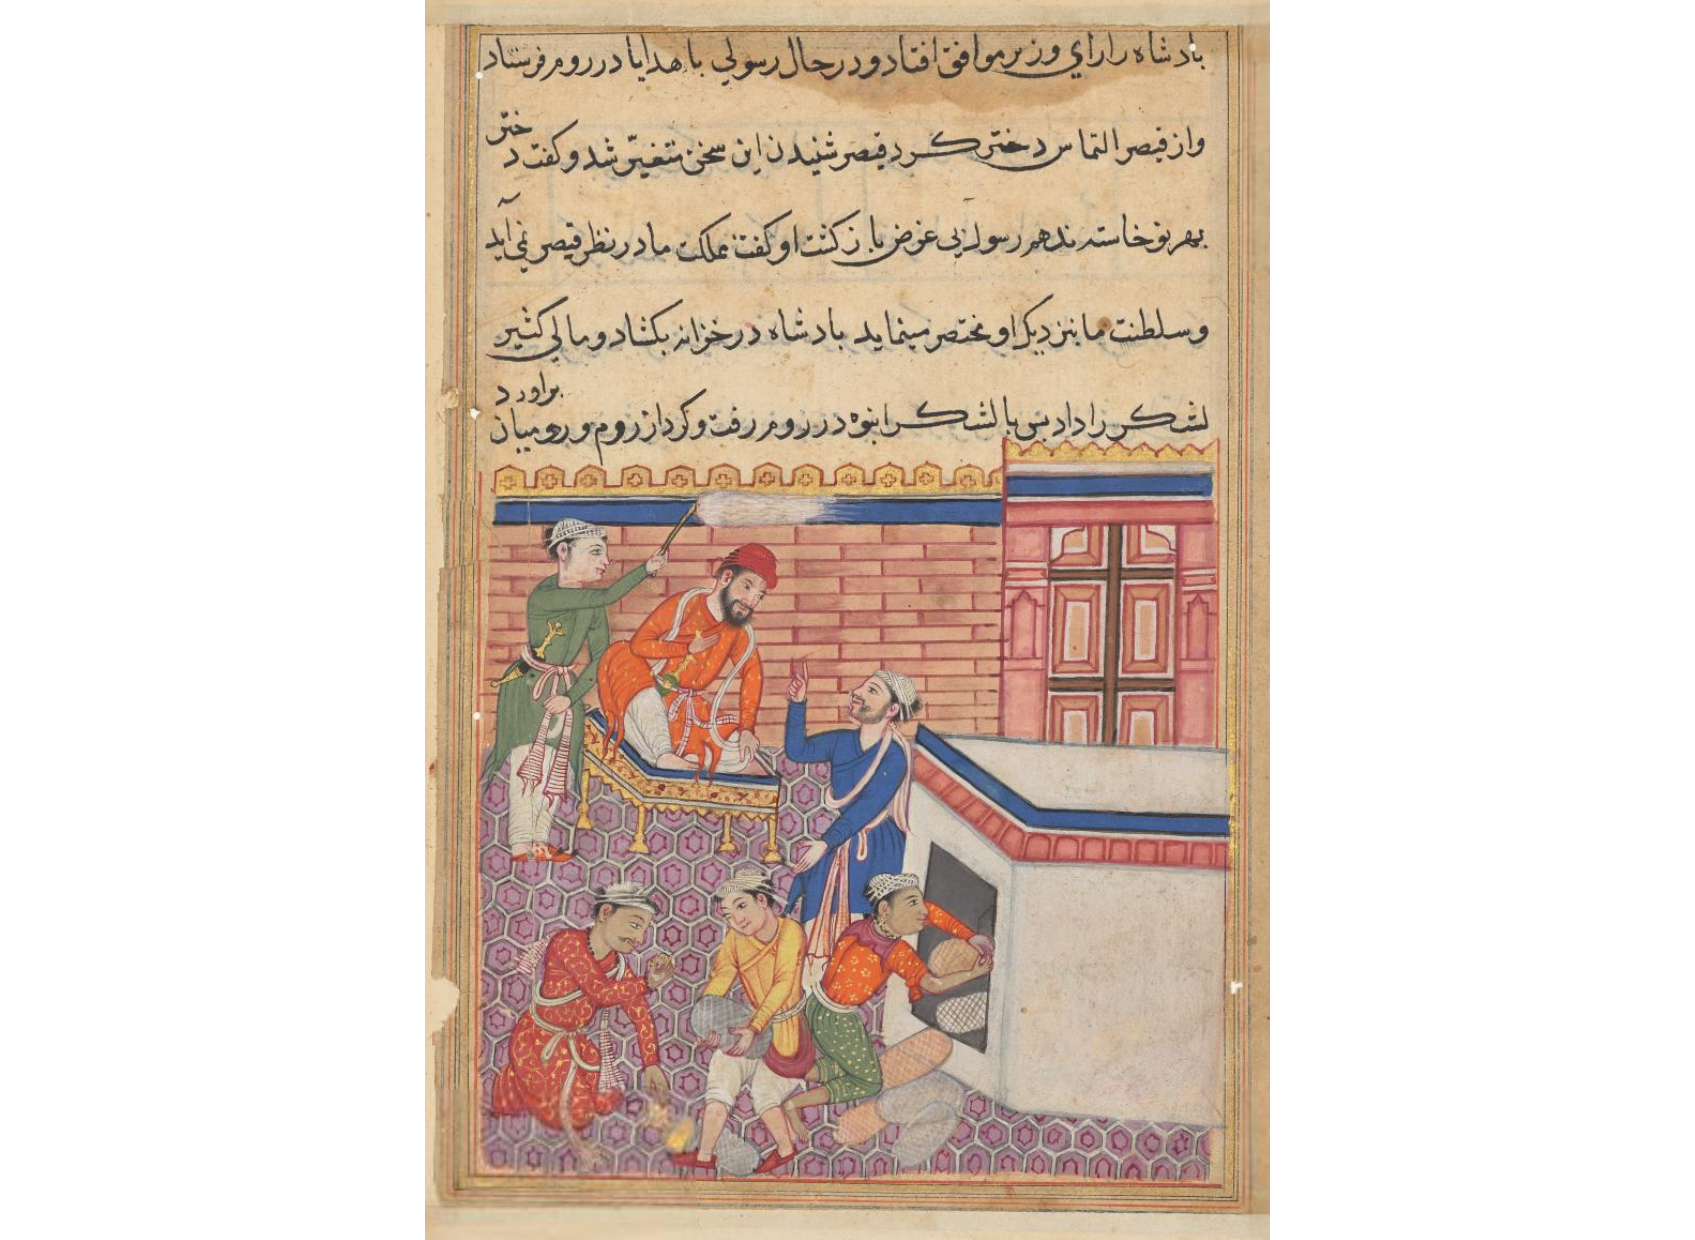 بادشاه را راي وزير موافق افتاد و در حال رسولي با هدايا در روم فرستاد
و از قيصر التماس دختر كرد قيصر شنيدن اين سخن متغيّر شد و كفت دختر
بهر نو خاسته ندهم رسول بي غرض باز كشت او كفت مملكت ما در نظر قيصر نمي آيد
و سلطنت ما بنزديك او مختصر مينمايد بادشاه در خزانه بكشاد و مالي كثير
لشكر را داد بس با لشكر انبوه در روم رفت و كرد از روم و روميان براورد